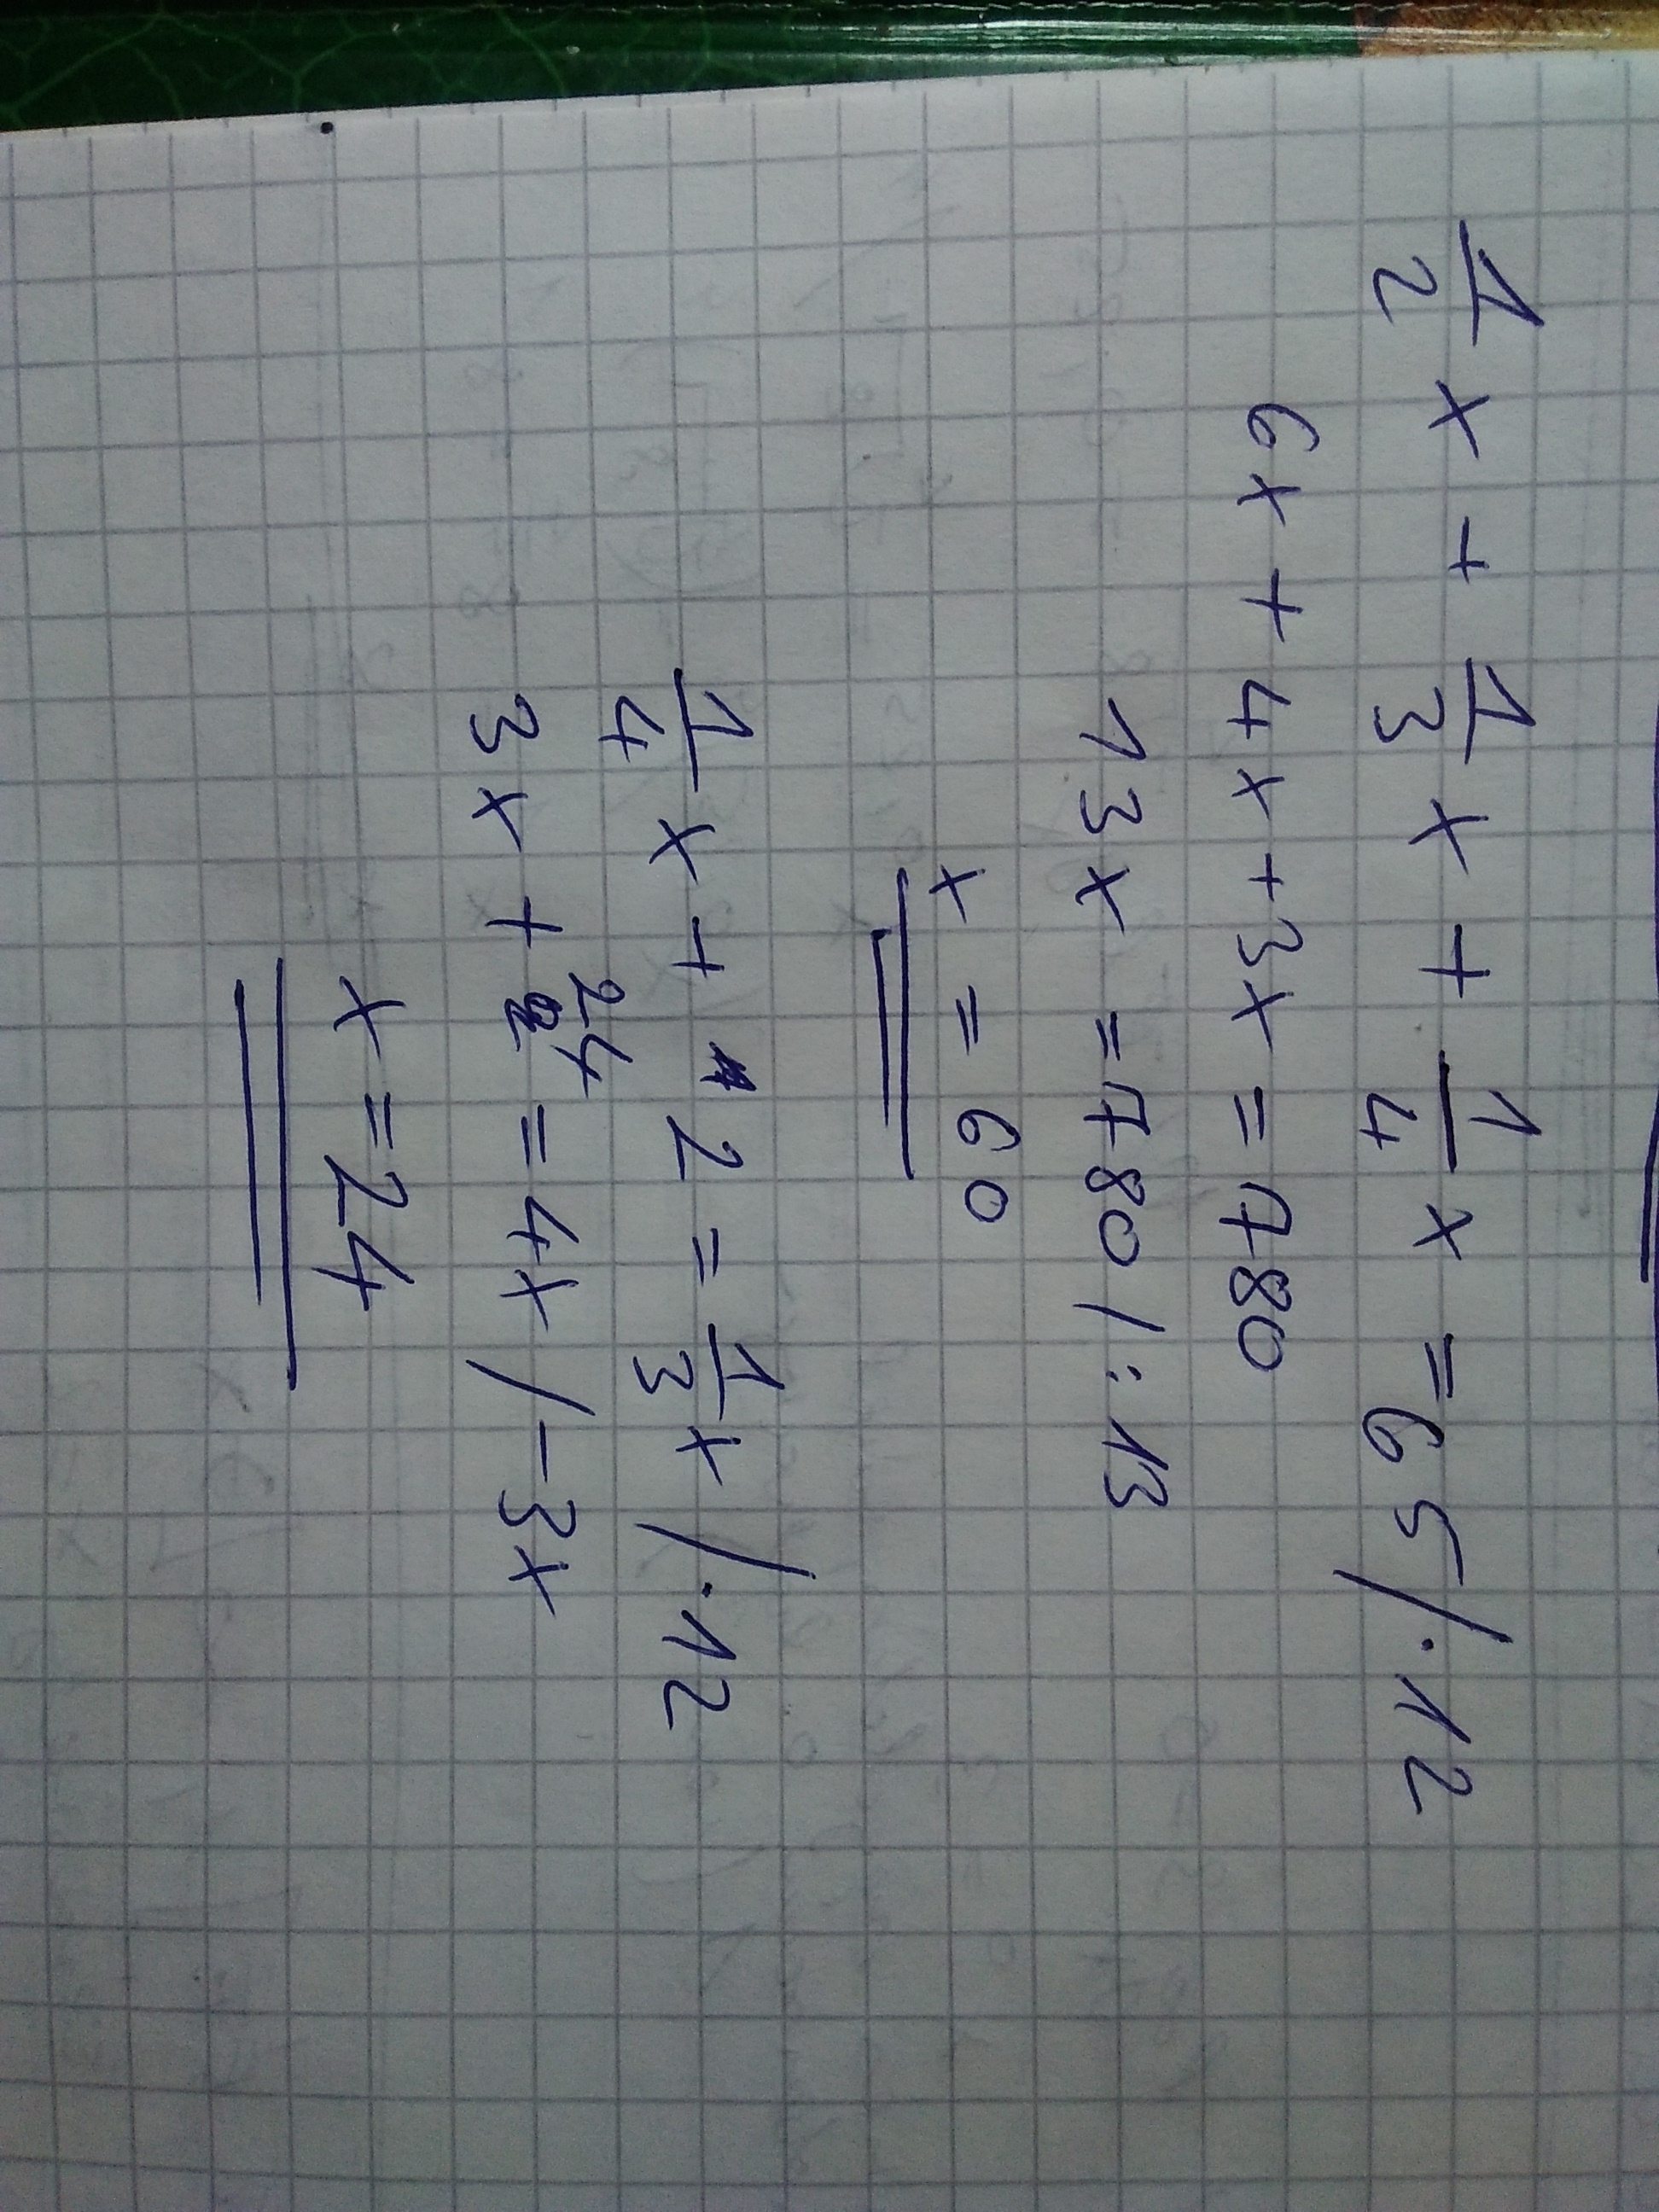 1/2 x + 1/3 x + 1/4 x = 65 /·12
6x + 4x + 3x = 780
13x = 780 /:13
x = 60
1/4 x + 2 = 1/3 x /·12
3x + 24 = 4x /-3x
x = 24